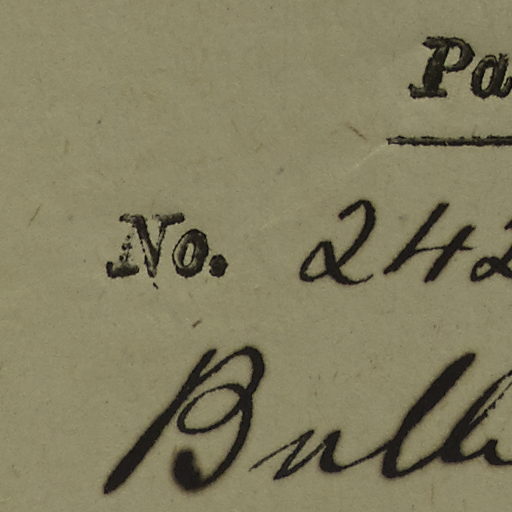 Pa
No. 242
Bull